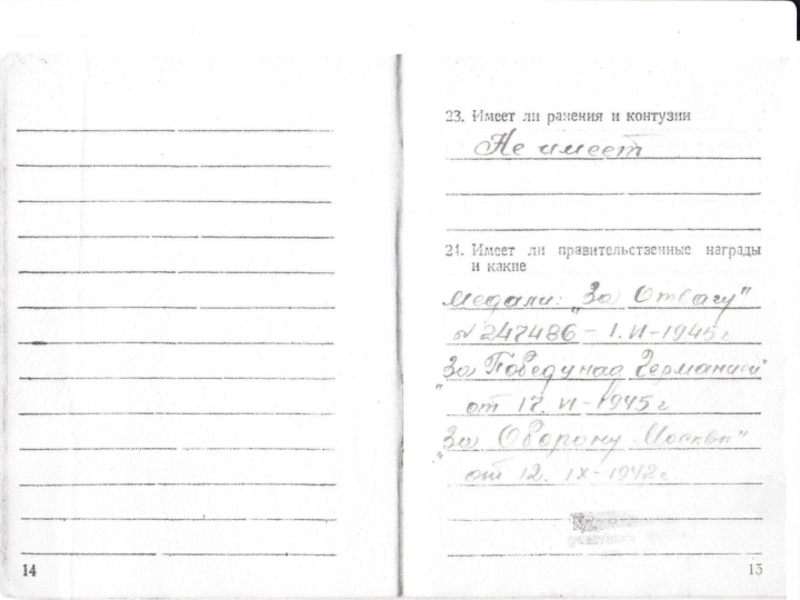 23. Имеет ли ранения и контузии
Не имеет
24. Имеет ли правительственные награды
и какие
Медали: "За Отвагу"
№ 247486 – 1. VI – 1945 г
"За Победу над Германией"
от 17. VI – 1945 г
"За Оборону Москвы"
от 12. IX –
14
15